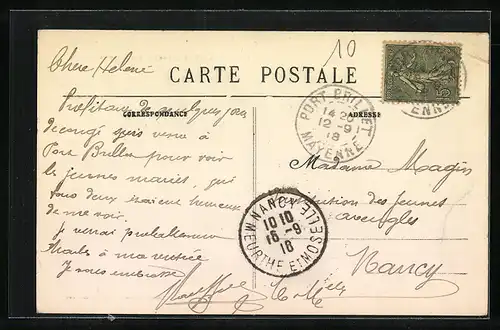 10
Chere Helene
CARTE POSTALE
CORRESPONDANCE
ADRESSE
Profitant de quelques jours
de congé je suis venu à
Port Brillet pour voir
les jeunes mariés, qui
tous deux étaient heureux
de me voir.
Je verrai probablement
à ma rentrée
Je vous embrasse
PORT-BRILLET
14
12 -9
18
MAYENNE
NANCY
10 10
16 -9
18
MEURTHE ET MOSELLE
Madame Magin
Institution des Jeunes
aveugles
Nancy
M. et M.